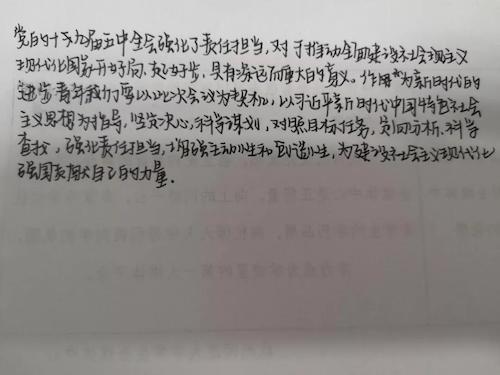 党的十九届五中全会强化了责任担当,对于推动全面建设社会主义
现代化国家开好局,起好步,具有深远而重大的意义。作为新时代的
进步青年我们要以此次会议为契机,以习近平新时代中国特色社会
主义思想为指导,坚定决心,科学谋划,对照目标任务,全面分析,科学
查找,强化责任担当,增强主动性和创造性,为建设社会主义现代化
强国贡献自己的力量.